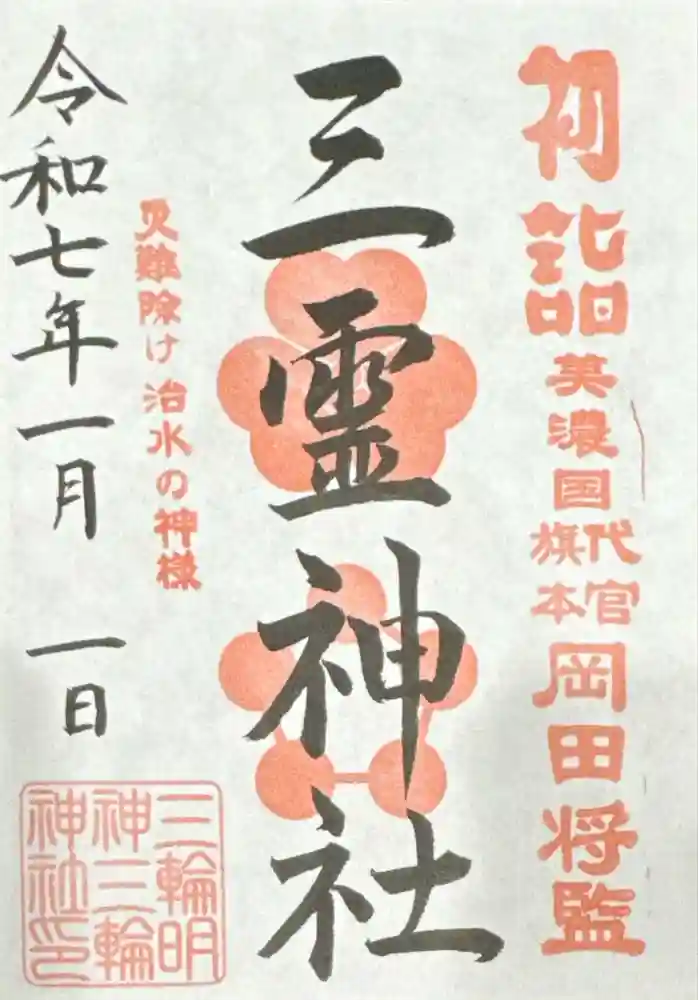 初詣
美濃国
代官
旗本
岡田将監
三霊神社
災難除け治水の神様
令和七年一月 一日
三輪明
神三輪
神社印